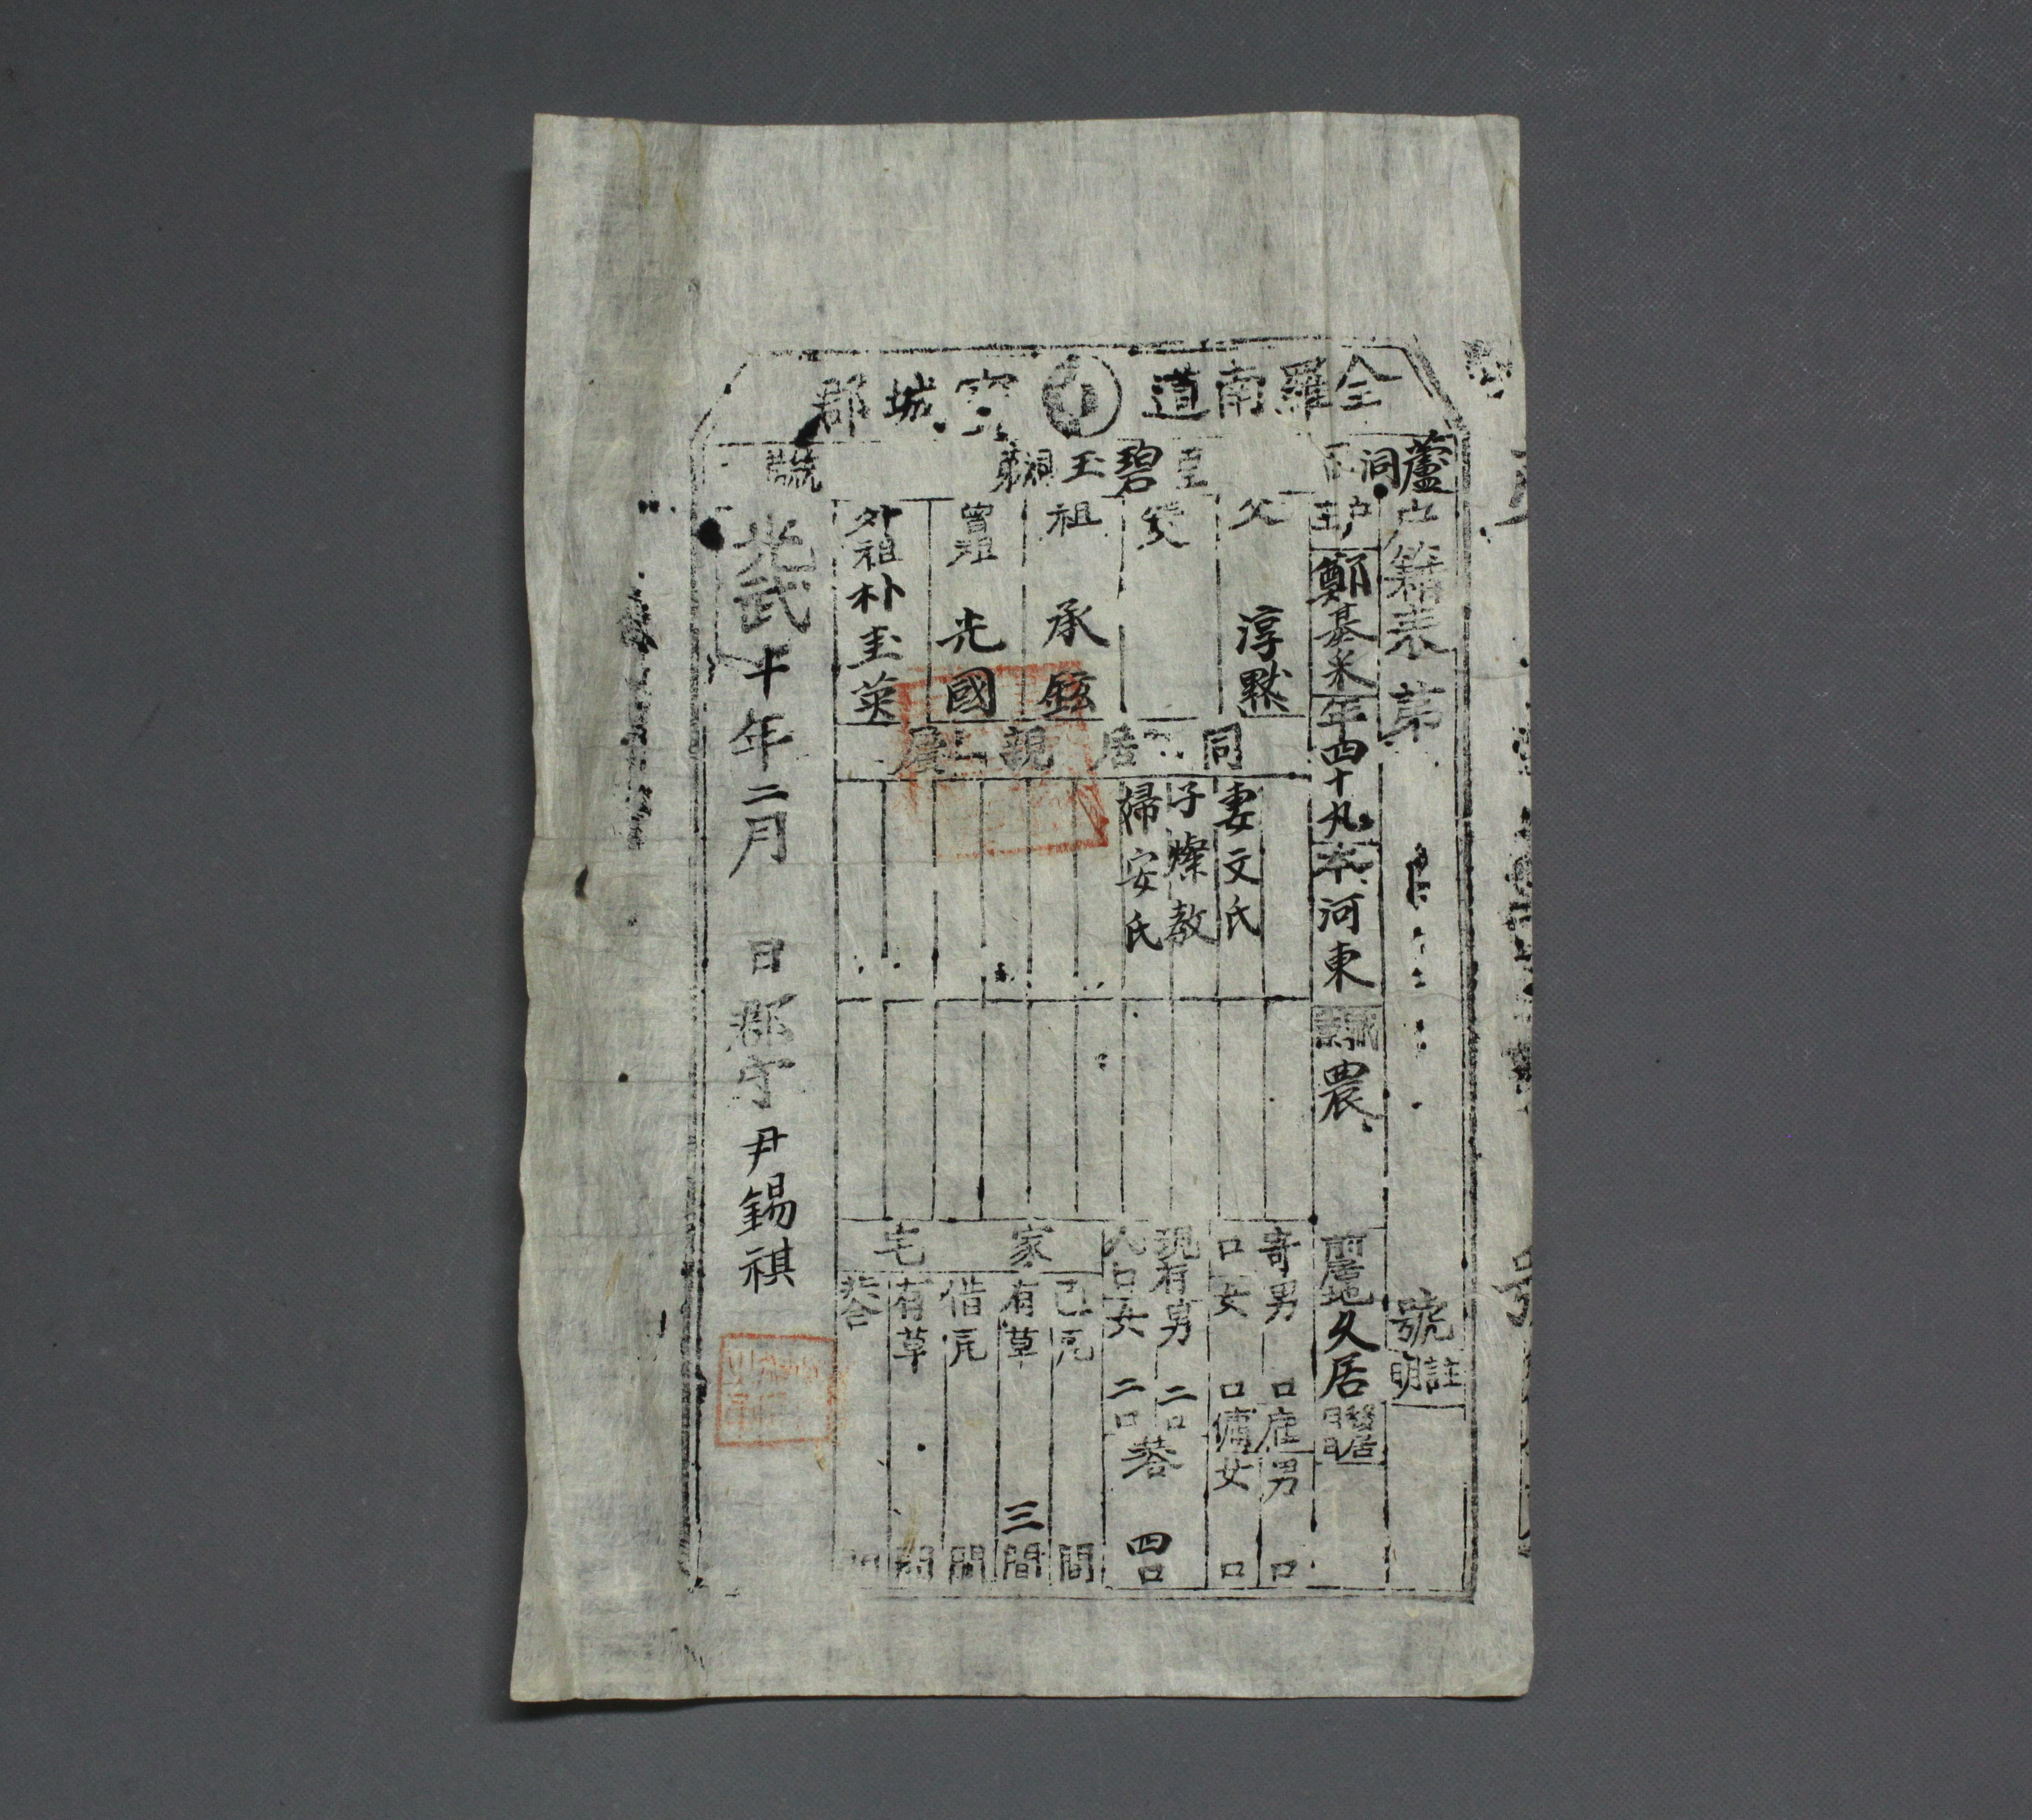 全羅南道 寶城郡
蘆洞面 碧玉洞 第 號
户籍表 第 號 註明
户主 鄭基采 年四十九 本河東 職業 農 前居地 久居 移居月日
父 淳黙
生父
祖 承鉉
曾祖 光國
外祖 朴圭英
同居親屬
妻文氏
子燦敎
婦安氏
寄口 男 口 雇男 口
女 口 傭女 口
現有人口 男 二口
女 二口
共合 四口
家宅
己有 瓦 間
草 三間
借有 瓦 間
草 間
共合 間
光武十年二月 日 郡守 尹錫祺